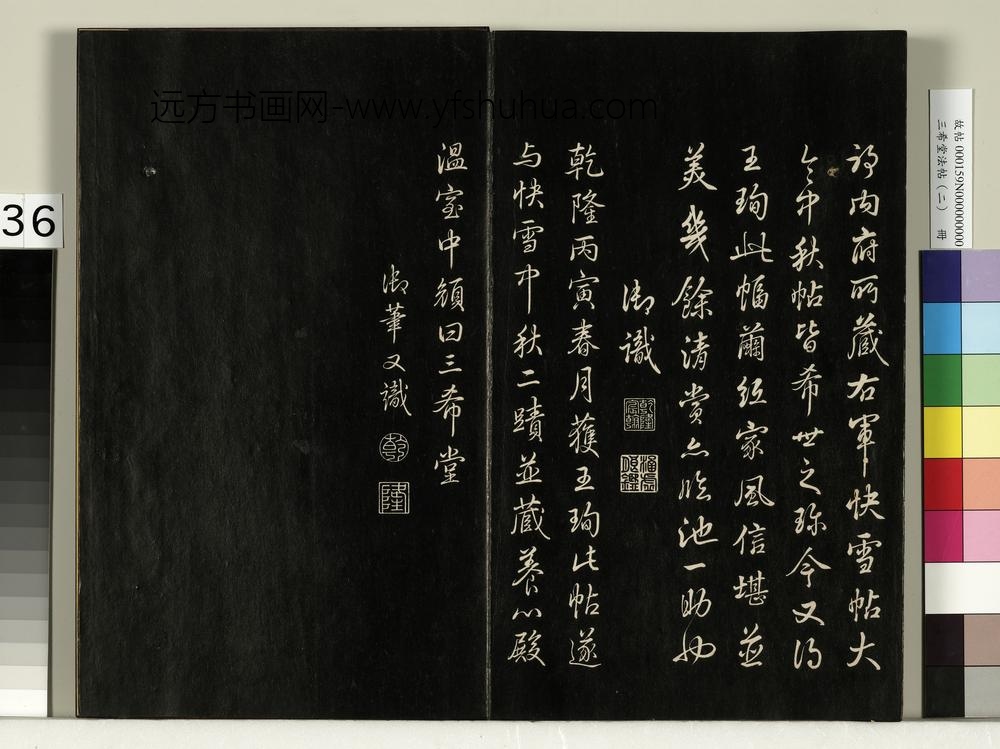 乃內府所藏右軍快雪帖大
令中秋帖皆希世之珍今又得
王珣此幅蘭紙家風信堪並
美幾餘清賞亦臨池一助也
御識
乾隆宸翰
乾隆丙寅春月獲王珣此帖遂
与快雪中秋二蹟並藏養心殿
溫室中顏曰三希堂
御筆又識
乾
隆
远方书画网-www.yfshuhua.com
故帖 000159N000000000
三希堂法帖（二） 冊
36